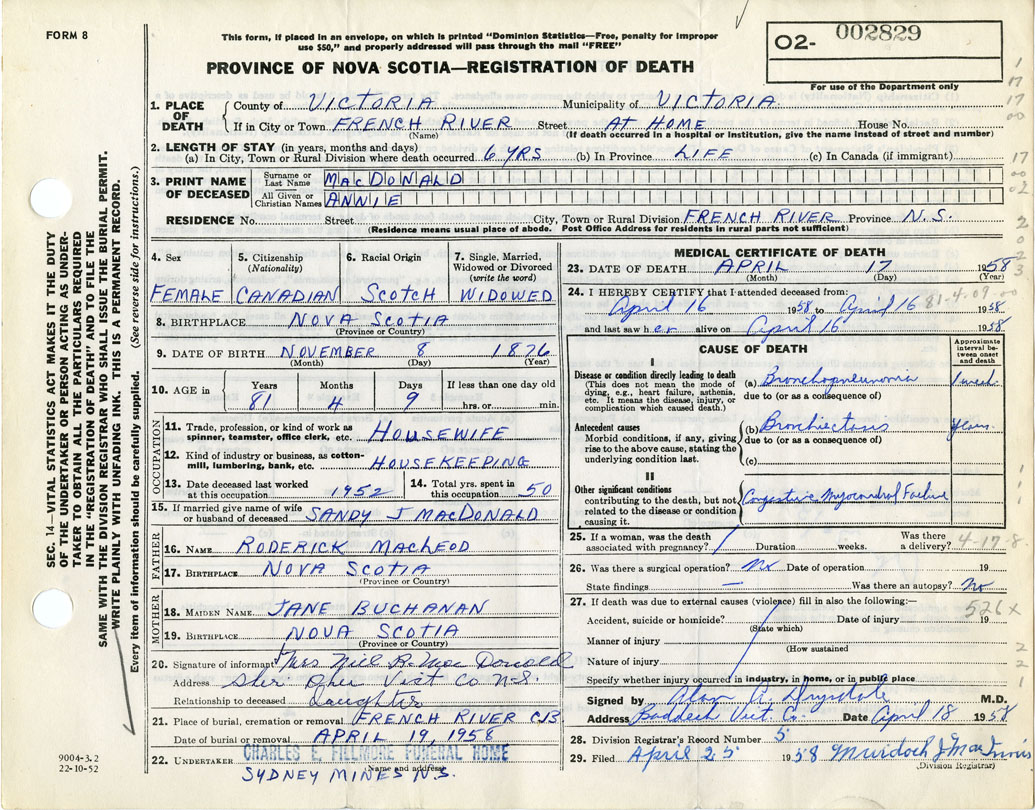 FORM 8
This form, if placed in an envelope, on which is printed "Dominion Statistics—Free, penalty for improper
use $50," and properly addressed will pass through the mail "FREE"
PROVINCE OF NOVA SCOTIA—REGISTRATION OF DEATH
O2- 002829
For use of the Department only
SEC. 14—VITAL STATISTICS ACT MAKES IT THE DUTY
OF THE UNDERTAKER OR PERSON ACTING AS UNDER-
TAKER TO OBTAIN ALL THE PARTICULARS REQUIRED
IN THE "REGISTRATION OF DEATH" AND TO FILE THE
SAME WITH THE DIVISION REGISTRAR WHO SHALL ISSUE THE BURIAL PERMIT.
WRITE PLAINLY WITH UNFADING INK. THIS IS A PERMANENT RECORD.
Every item of information should be carefully supplied. (See reverse side for instructions.)
1. PLACE OF DEATH
County of VICTORIA Municipality of VICTORIA
If in City or Town FRENCH RIVER Street AT HOME House No.
(Name) (If death occurred in a hospital or institution, give the name instead of street and number)
2. LENGTH OF STAY (in years, months and days)
(a) In City, Town or Rural Division where death occurred 6 YRS (b) In Province LIFE (c) In Canada (if immigrant)
3. PRINT NAME OF DECEASED
Surname or Last Name MACDONALD
All Given or Christian Names ANNIE
RESIDENCE No. Street City, Town or Rural Division FRENCH RIVER Province N.S.
(Residence means usual place of abode. Post Office Address for residents in rural parts not sufficient)
4. Sex 5. Citizenship (Nationality) 6. Racial Origin 7. Single, Married, Widowed or Divorced (write the word)
FEMALE CANADIAN SCOTCH WIDOWED
8. BIRTHPLACE NOVA SCOTIA
(Province or Country)
9. DATE OF BIRTH NOVEMBER 8 1876
(Month) (Day) (Year)
10. AGE in Years Months Days If less than one day old
81 4 9 hrs. or min.
OCCUPATION
11. Trade, profession, or kind of work as
spinner, teamster, office clerk, etc. HOUSEWIFE
12. Kind of industry or business, as cotton-
mill, lumbering, bank, etc. HOUSEKEEPING
13. Date deceased last worked at this occupation 1952 14. Total yrs. spent in this occupation 50
15. If married give name of wife
or husband of deceased SANDY J MACDONALD
FATHER
16. NAME RODERICK MACLEOD
17. BIRTHPLACE NOVA SCOTIA
(Province or Country)
MOTHER
18. MAIDEN NAME JANE BUCHANAN
19. BIRTHPLACE NOVA SCOTIA
(Province or Country)
20. Signature of informant Mrs Niel R. Mac Donald
Address Vict Co N.S.
Relationship to deceased daughter
21. Place of burial, cremation or removal FRENCH RIVER CB
Date of burial or removal APRIL 19, 1958
22. UNDERTAKER CHARLES E. FILLMORE FUNERAL HOME
Name and address
SYDNEY MINES N.S.
9004-3.2
22-10-52
MEDICAL CERTIFICATE OF DEATH
23. DATE OF DEATH APRIL 17 1958
(Month) (Day) (Year)
24. I HEREBY CERTIFY that I attended deceased from:
April 16 1958 to April 16 1958
81-4-09-00
and last saw her alive on April 16 1958
CAUSE OF DEATH
Approximate interval between onset and death
I
Disease or condition directly leading to death
(This does not mean the mode of
dying, e.g., heart failure, asthenia,
etc. It means the disease, injury, or
complication which caused death.)
(a) Bronchopneumonia 1 week
due to (or as a consequence of)
Antecedent causes
Morbid conditions, if any, giving
rise to the above cause, stating the
underlying condition last.
(b) Bronchiectasis years
due to (or as a consequence of)
(c)
II
Other significant conditions
contributing to the death, but not
related to the disease or condition
causing it.
Congestive Myocardial Failure
25. If a woman, was the death
associated with pregnancy? / Duration weeks. Was there a delivery?
4-17-8
26. Was there a surgical operation? no Date of operation 19
State findings — Was there an autopsy? no
27. If death was due to external causes (violence) fill in also the following:—
526 x
Accident, suicide or homicide? Date of injury 19
(State which)
Manner of injury
(How sustained
Nature of injury
Specify whether injury occurred in industry, in home, or in public place
Signed by Alan A. Drysdale M.D.
Address Baddeck Vict. Co. Date April 18 1958
28. Division Registrar's Record Number 5
29. Filed April 25 1958 Murdoch J
(Division Registrar)